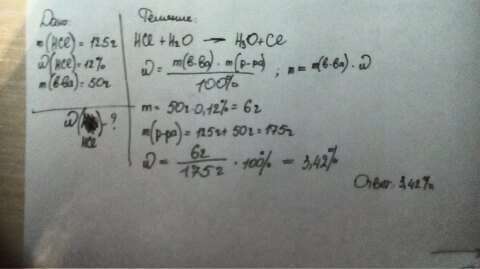 Дано:
m(HCl) = 125г
ω(HCl) = 12%
m(в-ва) = 50г
ω(HCl) - ?
Решение:
HCl + H₂O → H₃O + Cl
ω = m(в-ва) · m(р-ра) / 100% ; m = m(в-ва) · ω
m = 50г · 0,12% = 6г
m(р-ра) = 125г + 50г = 175г
ω = 6г / 175г · 100% = 3,42%
Ответ: 3,42%